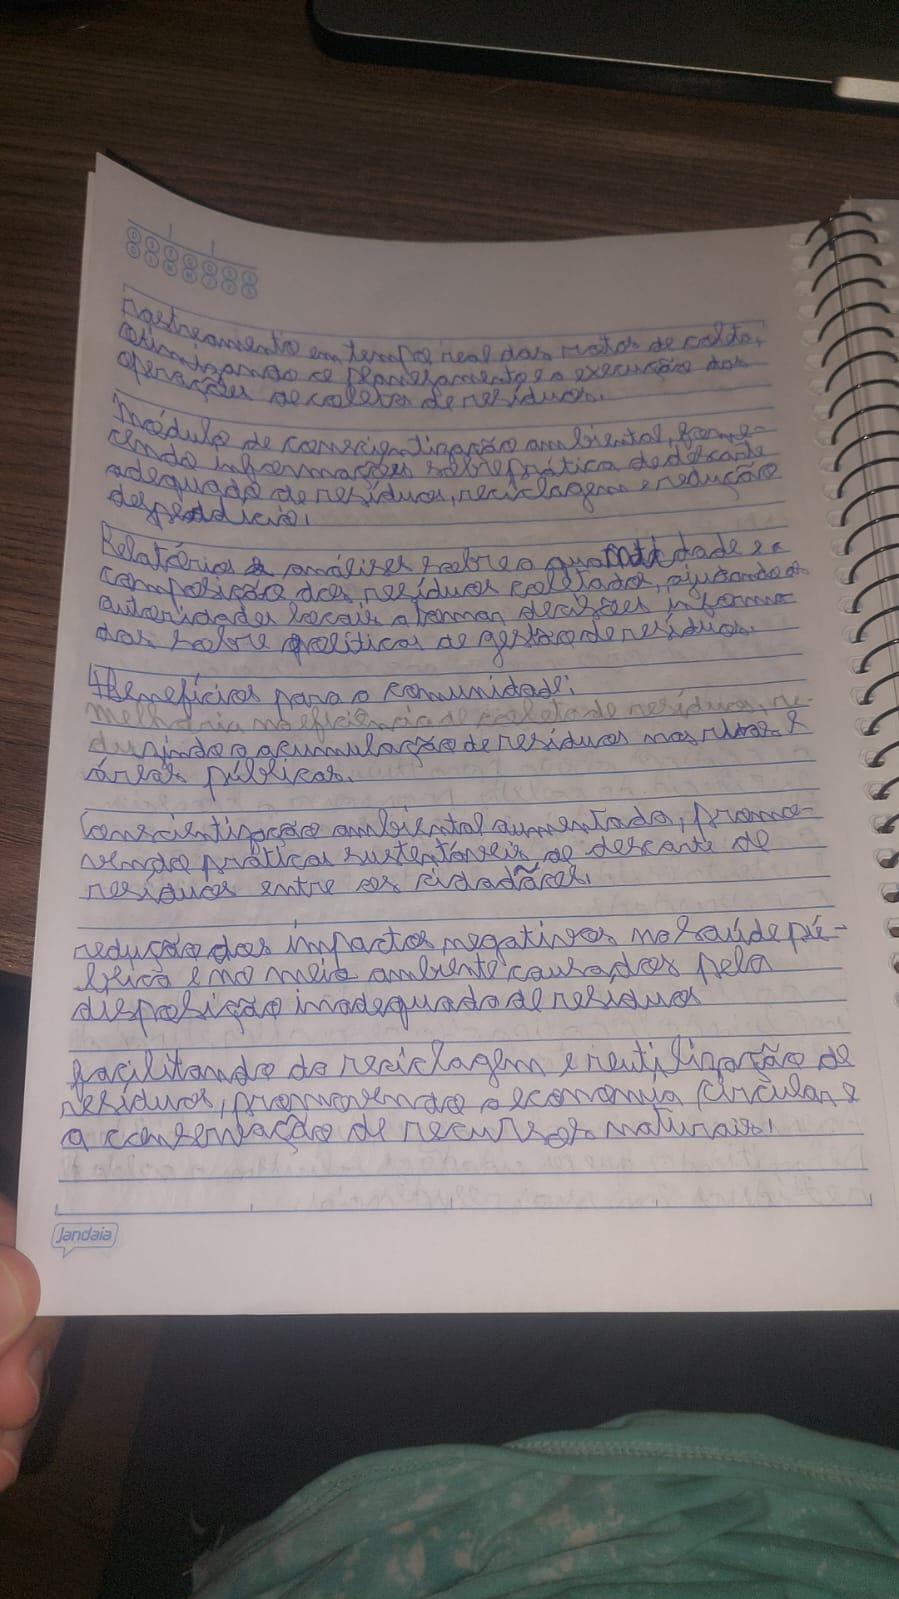 Rastreamento em tempo real das rotas de colta,
otimizando o planejamento e a execução das
operações de coleta de resíduos.
Módulo de conscientização ambiental, forne-
cendo informações sobre prática de descarte
adequado de resíduos, reciclagem e redução
desperdício.
Relatórios e análises sobre a quantidade e a
composição dos resíduos coletados, ajudando as
autoridades locais a tomar decisões informa
das sobre políticas de gestão de resíduos.
Benefícios para a comunidade:
Melhoria na eficiência de coleta de resíduos, re-
duzindo a acumulação de resíduos nas ruas e
áreas públicas.
Conscientização ambiental aumentada, promo-
vendo práticas sustentáveis de descarte de
resíduos entre os cidadãos.
redução dos impactos negativos na saúde pú-
blica e no meio ambiente causados pela
disposição inadequada de resíduos
facilitando da reciclagem e reutilização de
resíduos, promovendo a economia circular e
a conservação de recursos naturais.
Jandaia